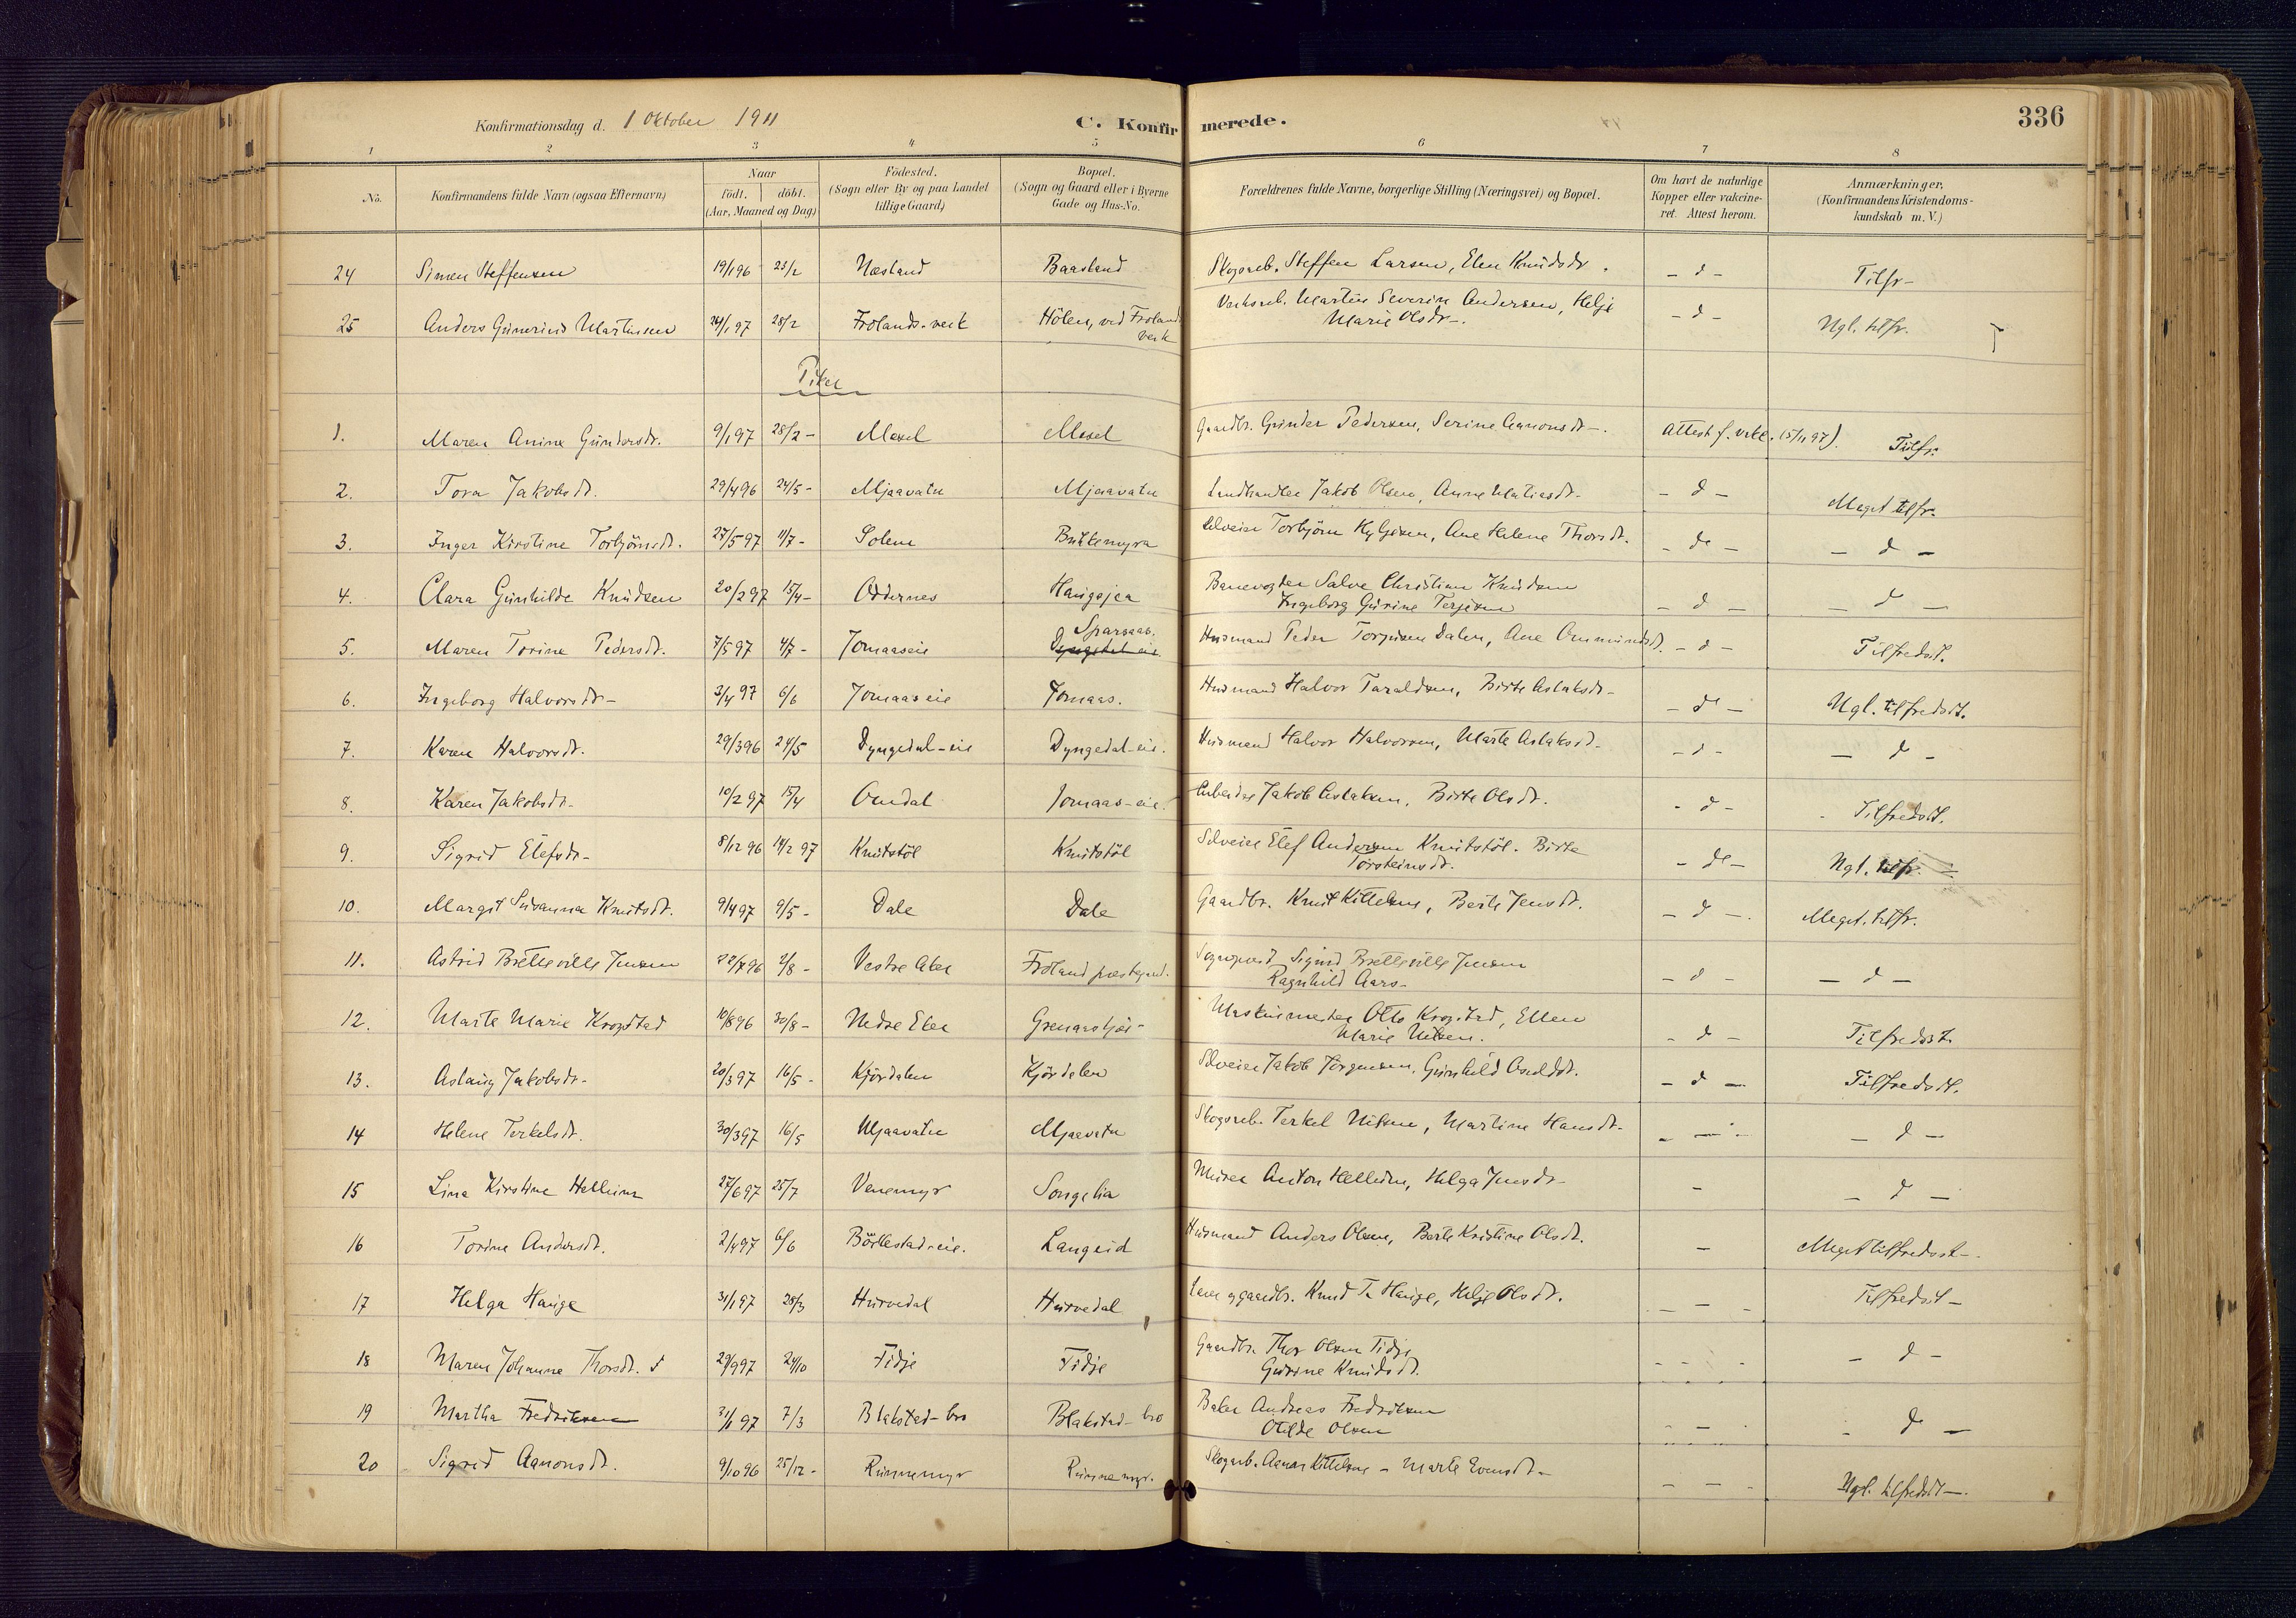 Konfirmationsdag d. 1 Oktober 1911 C. Konfirmerede. 336
1 2 3 4 5 6 7 8
No. Konfirmandens fulde Navn (ogsaa Efternavn) Naar födt. döbt. (Aar, Maaned og Dag) Födested. (Sogn eller By og paa Landet tillige Gaard) Bopæl. (Sogn og Gaard eller i Byerne Gade og Hus-No. Forældrenes fulde Navne, borgerlige Stilling (Næringsvei) og Bopæl. Om havt de naturlige Kopper eller vakcineret. Attest herom. Anmærkninger, (Konfirmandens Kristendomskundskab m. V.)
24 Simen Steffensen 19/1 96 23/2 Næsland Baasland Skogsarb. Steffen Larsen, Elen Knudsdr. - d - Tilfr-
25 Anders Gunerius Martinsen 24/1 97 28/2 Frolands-verk Hölen, ved Frolands verk Verksarb. Martin Severin Andersen, Helje Marie Olsdr-. - d - Ngl. tilfr.
Piker
1. Maren Anine Gundersdr. 9/1 97 28/2 - Mesel Mesel Gaardbr. Gunder Pedersen, Serine Aanonsdr-. Attest f. vakc. (5/11 97). Tilfr.
2. Tora Jakobsdr. 29/4 96 24/5 - Mjaavatn Mjaavatn Landhandler Jakob Olsen, Anne Matiasdr. - d - Meget tilfr.
3. Inger Kirstine Torbjörnsdr. 27/5 97 11/7 - Solem Bukkemyra Selveier Torbjörn Kyljesen, Ane Helene Thorsdr. - do - - d -
4. Clara Gunhilde Knudsen 20/2 97 15/4 - Oddernes Haugsjea Banevogter Salve Christian Knudsen Ingeborg Gurine Terjesen - d - - d -
5. Maren Torine Pedersdr. 7/5 97 4/7 - Jomaaseie Sparsaas. Dyngedal eie Husmand Peder Torjusen Dalen, Ane Ommundsdr. - d - Tilfredsst.
6. Ingeborg Halvorsdr- 3/4 97 6/6 Jomaas eie Jomaas. Husmand Halvor Taraldsen, Birte Aslaksdr- - do - Ngl. tilfredsst.
7. Karen Halvorsdr. 29/3 96 24/5 Dyngedal-eie Dyngedal-eie. Husmand Halvor Halvorsen, Marte Aslaksdr- - d - - d -
8. Karen Jakobsdr- 10/2 97 15/4 Omdal Jomaas-eie. Arbeider Jakob Aslaksen, Birte Olsdr. - d - Tilfredsst.
9. Sigrid Elefsdr- 8/12 96 14/2 97 Knutstöl Knutstöl Selveier Elef Andersen Knutstöl. Birte Torsteinsdr. - do - Ngl. tilfr.
10. Margit Susanna Knutsdr. 9/4 97 9/5 - Dale Dale Gaardbr. Knut Kittelsen, Berte Jensdr. - d -. Meget. tilfr.
11. Astrid Bretteville Jensen 22/7 96 2/8 - Vestre Aker Froland præstegaard. Sogneprest Sigurd Bretteville Jensen Ragnhild Aars- - d - - d -
12. Marte Marie Krogstad 10/8 96 30/8 - Nedre Eker Grenaastjös- Maskinmester Otto Krogstad, Ellen Marie Nilsen. - d - Tilfredsst.
13. Aslaug Jakobsdr- 20/3 97 16/5 - Kjördalen Kjördalen Selveier Jakob Jörgensen, Gunhild Asuldsdr. - d - Tilfredsst.
14 Helene Terkelsdr. 30/3 97 16/5 Mjaavatn Mjaavatn Skogsarb. Terkel Nilsen, Martine Hansdr. - - - - d -
15 Lina Kirstine Hellum 27/6 97 25/7 Venemyr Songelia Murer Anton Hellum, Helga Jensdr- - - d -
16 Torine Andersdr. 2/4 97 6/6 Böllestad-eie. Langeid Husmand Anders Olsen, Berte Kristine Olsdr. - Meget tilfredsst-.
17 Helga Hauge 31/1 97 28/3 Hurvedal Hurvedal Lærer og gaardbr. Knud T. Hauge, Helje Olsdr. - - - Tilfredsst-
18 Maren Johanne Thorsdr. 29/9 97 24/10 Tidje Tidje Gaardbr. Thor Olsen Tidje Gurine Knudsdr. - - - - d -
19 Martha Fredriksen 31/1 97 7/3 Blakstad-bro Blakstad-bro Baker Andreas Fredriksen Otilde Olsen - - - - d -
20 Sigrid Aanonsdr. 9/10 96 25/12 - Runnemyr Runnemyr. Skogarb. Aanon Kittelsen - Marte Evensdr- - - - Ngl. tilfredsst-.